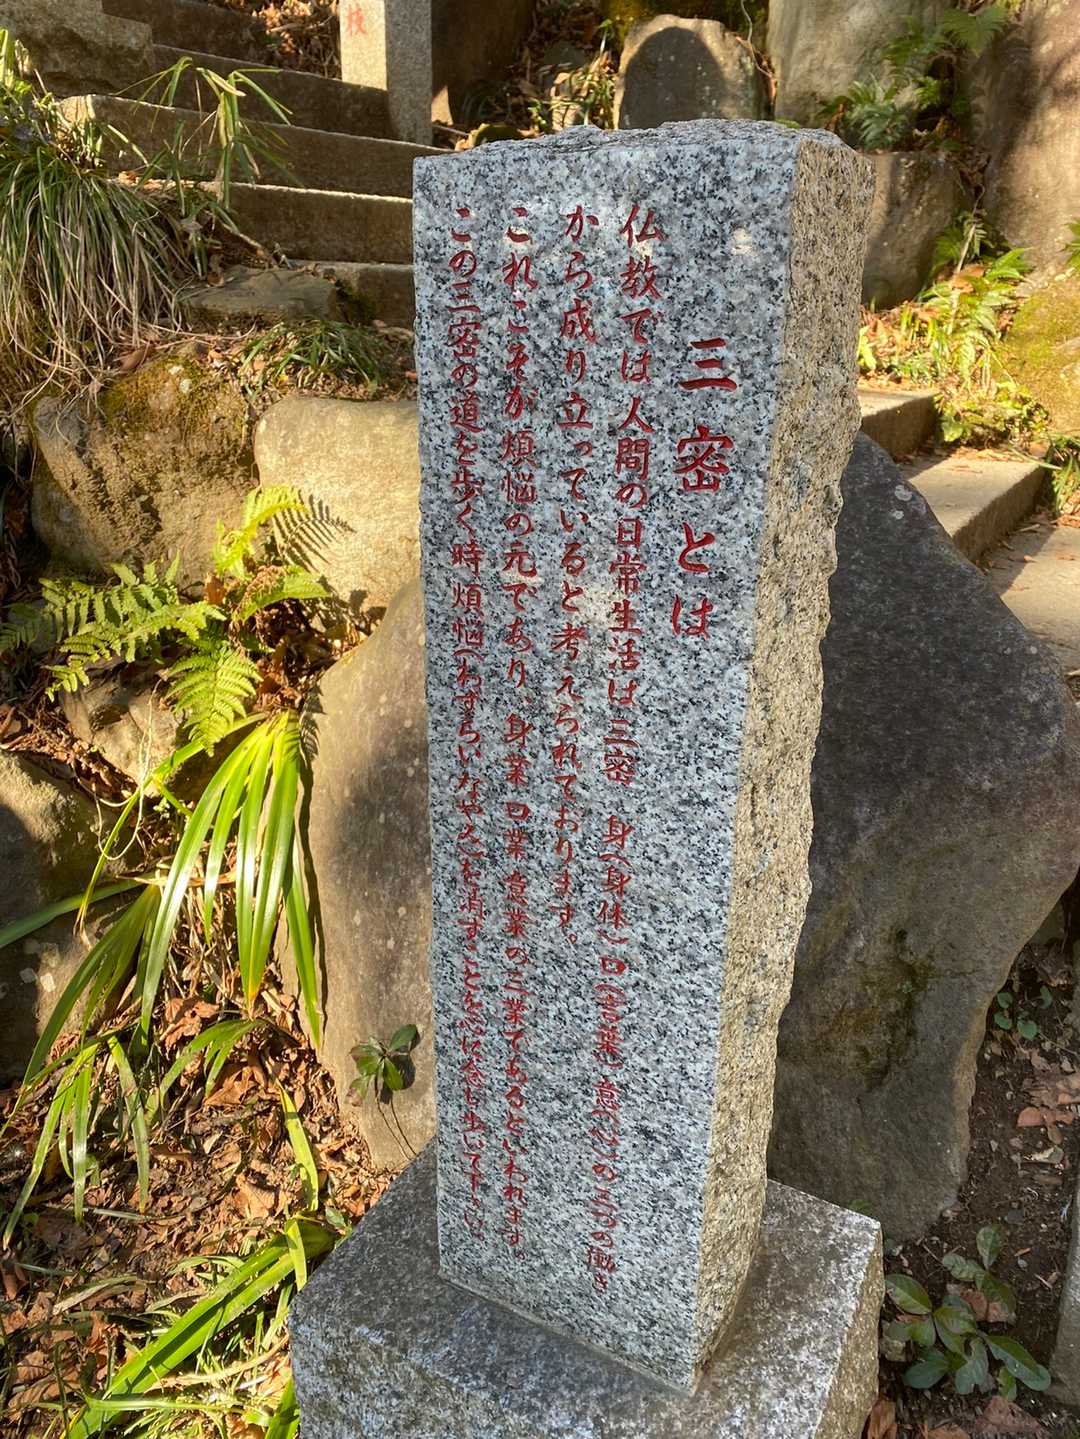 三密とは
仏教では人間の日常生活は三密 身(身体) 口(言葉) 意(心)の三つの働き
から成り立っていると考えられております。
これこそが煩悩の元であり、身業 口業 意業の三業であるといわれます。
この三密の道を歩く時煩悩(わずらいなやみ)を消すことを心に念じ歩いて下さい。